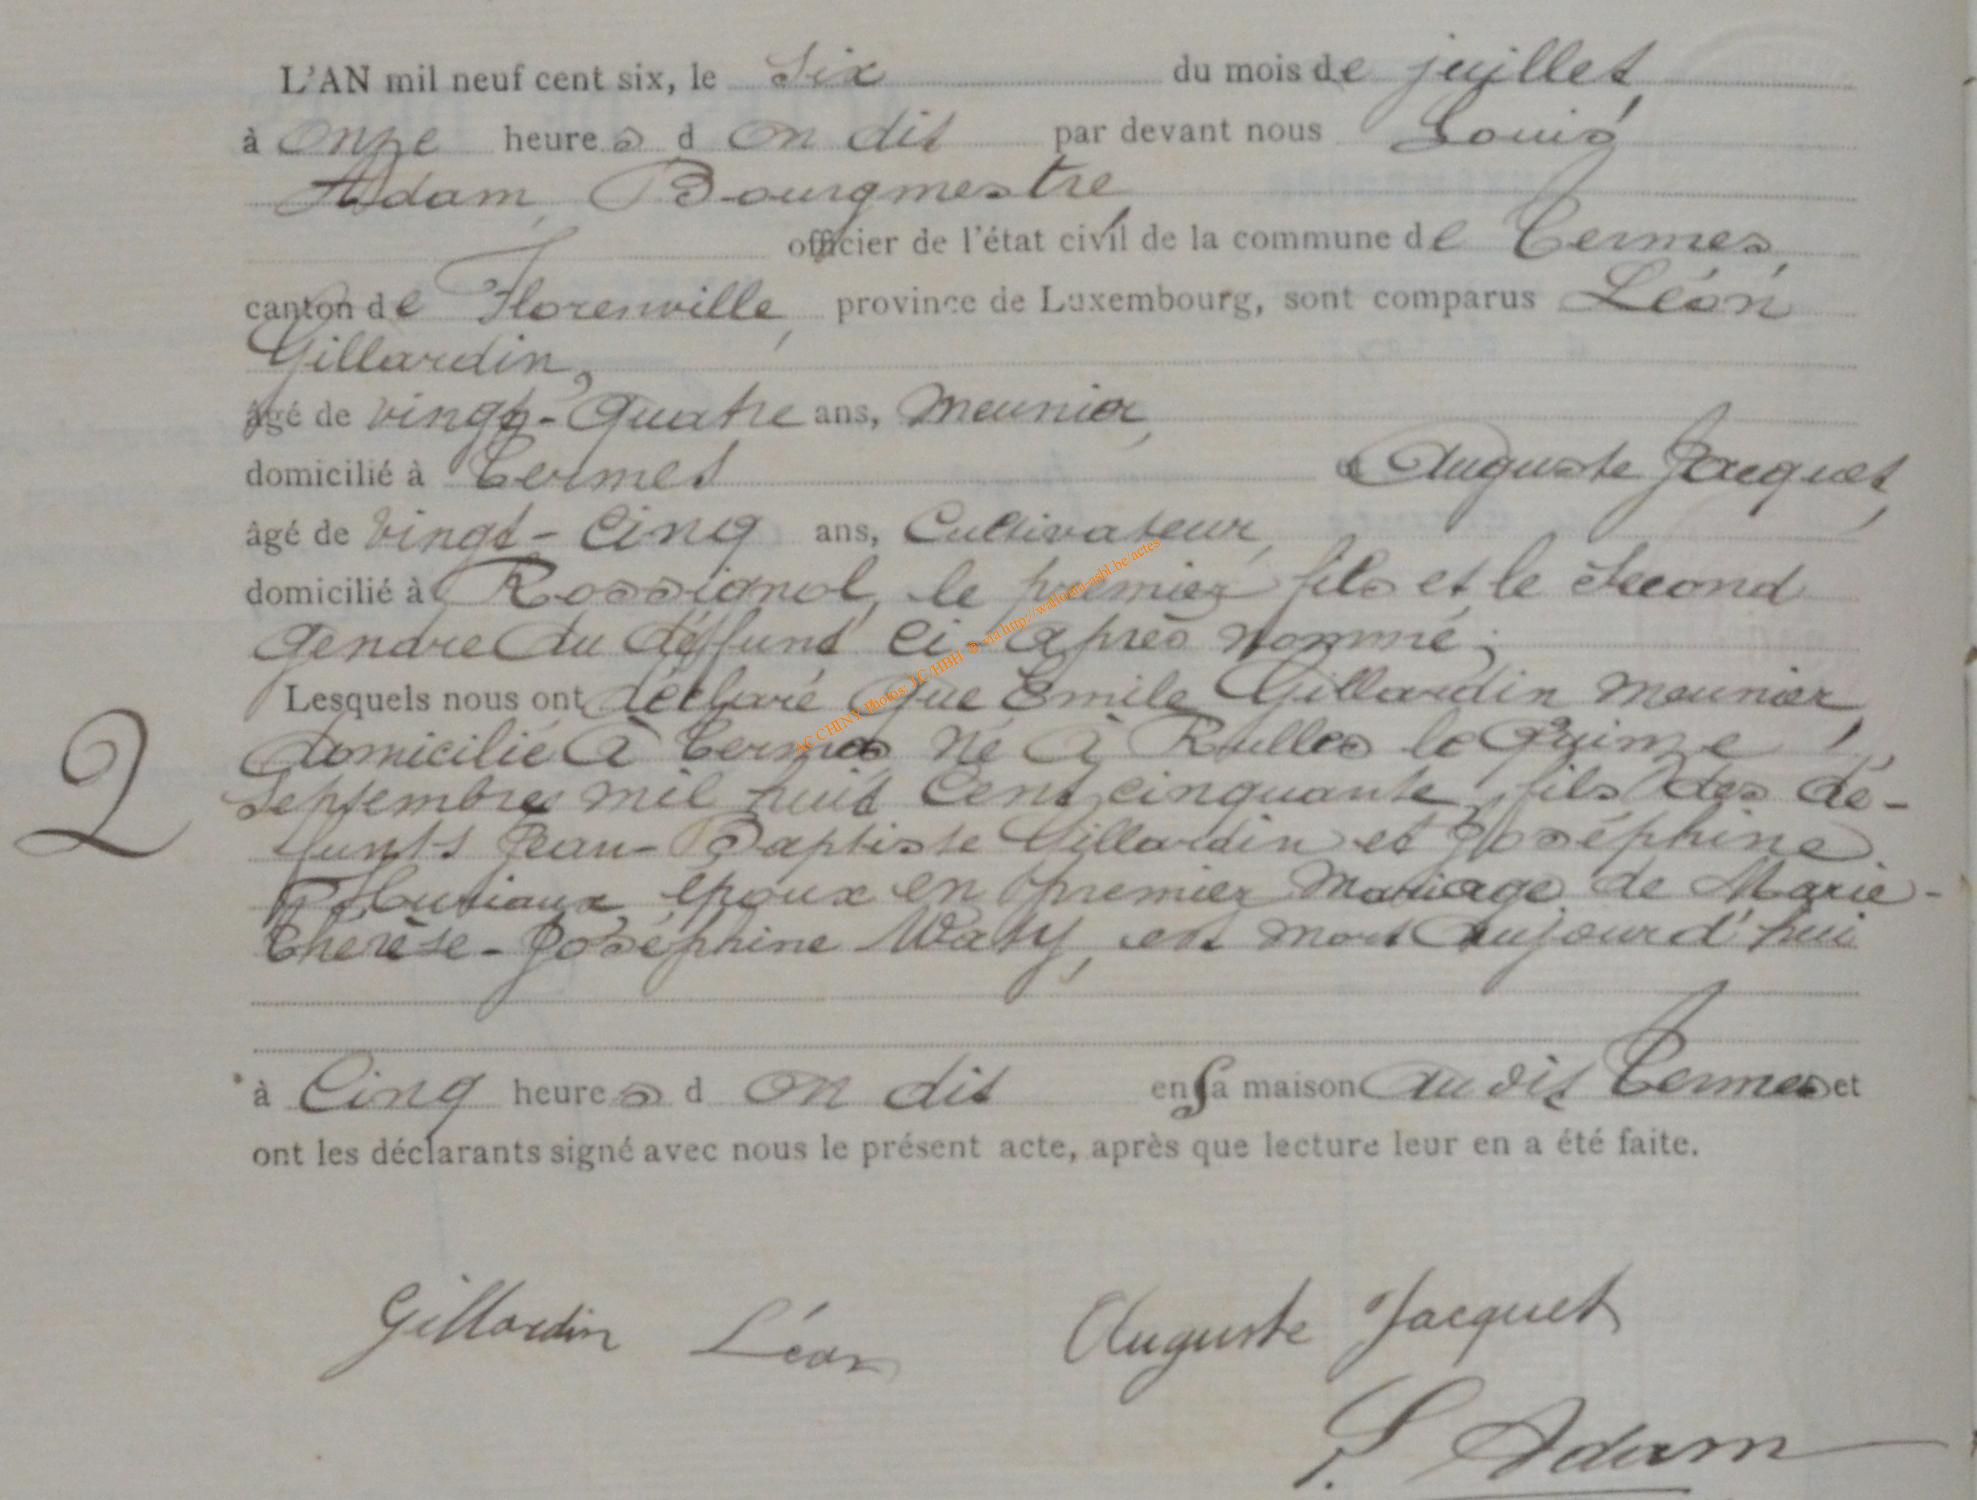 L'AN mil neuf cent six, le Six du mois de juillet,
à onze heures d on dit par devant nous Louis
Adam, Bourgmestre,
officier de l'état civil de la commune de Termes,
canton de Florenville, province de Luxembourg, sont comparus Léon
Gillardin,
âgé de vingt-quatre ans, meunier,
domicilié à Termes & Auguste Jacquet,
âgé de vingt-cinq ans, Cultivateur,
domicilié à Rossignol, le premier fils et le Second
gendre du déffunt ci-après nommé;
Lesquels nous ont déclaré que Emile Gillardin meunier,
domicilié à Termes né à Rulles le quinze
Septembre mil huit cent cinquante, fils des dé-
funts Jean-Baptiste Gillardin et Joséphine
époux en premier mariage de Marie-
Thérèse-Joséphine Waty, est mort aujourd'hui
à Cinq heures d on dit en sa maison au dit Termes et
ont les déclarants signé avec nous le présent acte, après que lecture leur en a été faite.
2
AC CHINY Photos JC HBH © via http://wallonia-asbl.be/actes
Gillardin Léon Auguste Jacquet
L. Adam